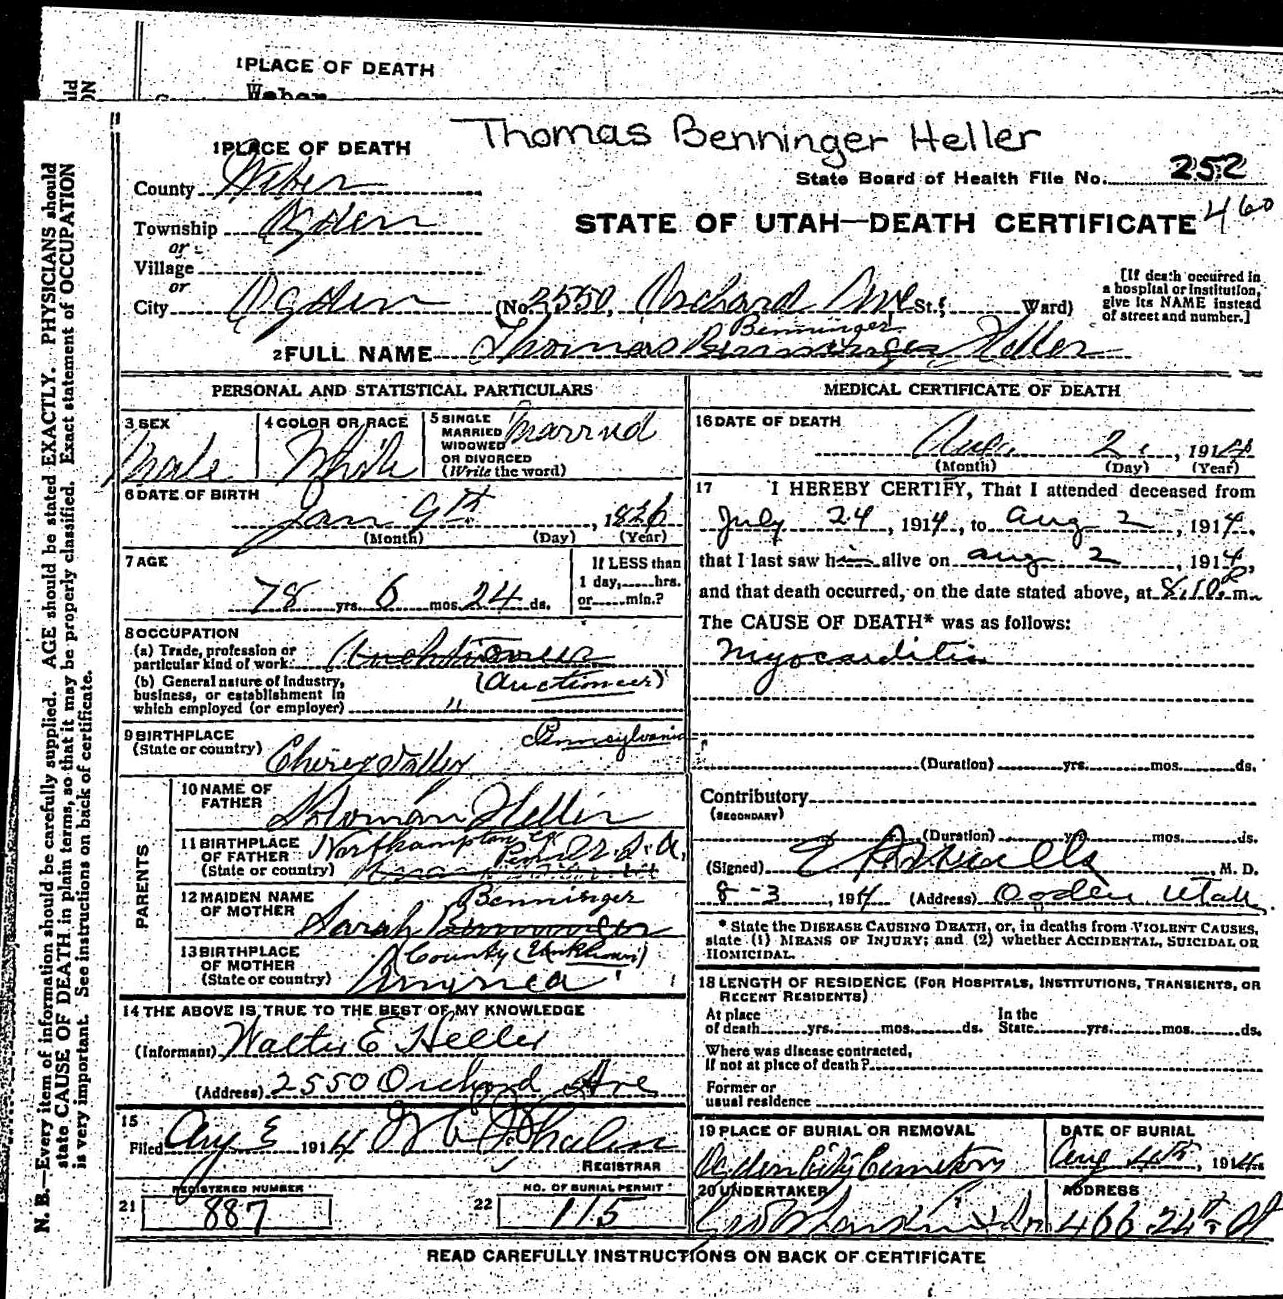 1 PLACE OF DEATH
Weber
Thomas Benninger Heller
1 PLACE OF DEATH
County Weber
State Board of Health File No. 252
Township Ogden
STATE OF UTAH—DEATH CERTIFICATE 460
or
Village
or
City Ogden (No. 2550, Orchard Ave St.; Ward)
[If death occurred in a hospital or institution, give its NAME instead of street and number.]
Benninger
2 FULL NAME Thomas Heller
PERSONAL AND STATISTICAL PARTICULARS
3 SEX
Male
4 COLOR OR RACE
White
5 SINGLE MARRIED WIDOWED OR DIVORCED (Write the word)
Married
6 DATE OF BIRTH
Jan 9th, 1836
(Month) (Day) (Year)
7 AGE
78 yrs. 6 mos. 24 ds.
If LESS than 1 day, hrs. or min.?
8 OCCUPATION
(a) Trade, profession or particular kind of work
(Auctioneer)
(b) General nature of Industry, business, or establishment in which employed (or employer) "
9 BIRTHPLACE
(State or country)
Pennsylvania
PARENTS
10 NAME OF FATHER
Heller
11 BIRTHPLACE OF FATHER (State or country)
Northampton U.S.A.
12 MAIDEN NAME OF MOTHER
Benninger
Sarah
13 BIRTHPLACE OF MOTHER (State or country)
(County Unknown)
America
14 THE ABOVE IS TRUE TO THE BEST OF MY KNOWLEDGE
(Informant) Walter E Heller
(Address) 2550 Orchard Ave
15
Filed Aug 1914
REGISTRAR
21 REGISTERED NUMBER
887
22 NO. OF BURIAL PERMIT
115
MEDICAL CERTIFICATE OF DEATH
16 DATE OF DEATH
Aug. 2, 1914
(Month) (Day) (Year)
17 I HEREBY CERTIFY, That I attended deceased from
July 24, 1914, to Aug 2, 1914,
that I last saw him alive on Aug 2, 1914,
and that death occurred, on the date stated above, at 8.10 P m.
The CAUSE OF DEATH* was as follows:
Myocarditis
(Duration) yrs. mos. ds.
Contributory
(SECONDARY)
(Duration) yrs. mos. ds.
(Signed) M. D.
8-3, 1914 (Address) Ogden Utah
* State the DISEASE CAUSING DEATH, or, in deaths from VIOLENT CAUSES,
state (1) MEANS OF INJURY; and (2) whether ACCIDENTAL, SUICIDAL OR
HOMICIDAL.
18 LENGTH OF RESIDENCE (FOR HOSPITALS, INSTITUTIONS, TRANSIENTS, OR
RECENT RESIDENTS)
At place of death yrs. mos. ds. In the State yrs. mos. ds.
Where was disease contracted,
If not at place of death?
Former or
usual residence
19 PLACE OF BURIAL OR REMOVAL
Ogden City Cemetery
DATE OF BURIAL
Aug 4th, 1914
20 UNDERTAKER
ADDRESS
466 24th St
READ CAREFULLY INSTRUCTIONS ON BACK OF CERTIFICATE
N. B.—Every item of information should be carefully supplied. AGE should be stated EXACTLY. PHYSICIANS should
state CAUSE OF DEATH in plain terms, so that it may be properly classified. Exact statement of OCCUPATION
is very important. See instructions on back of certificate.